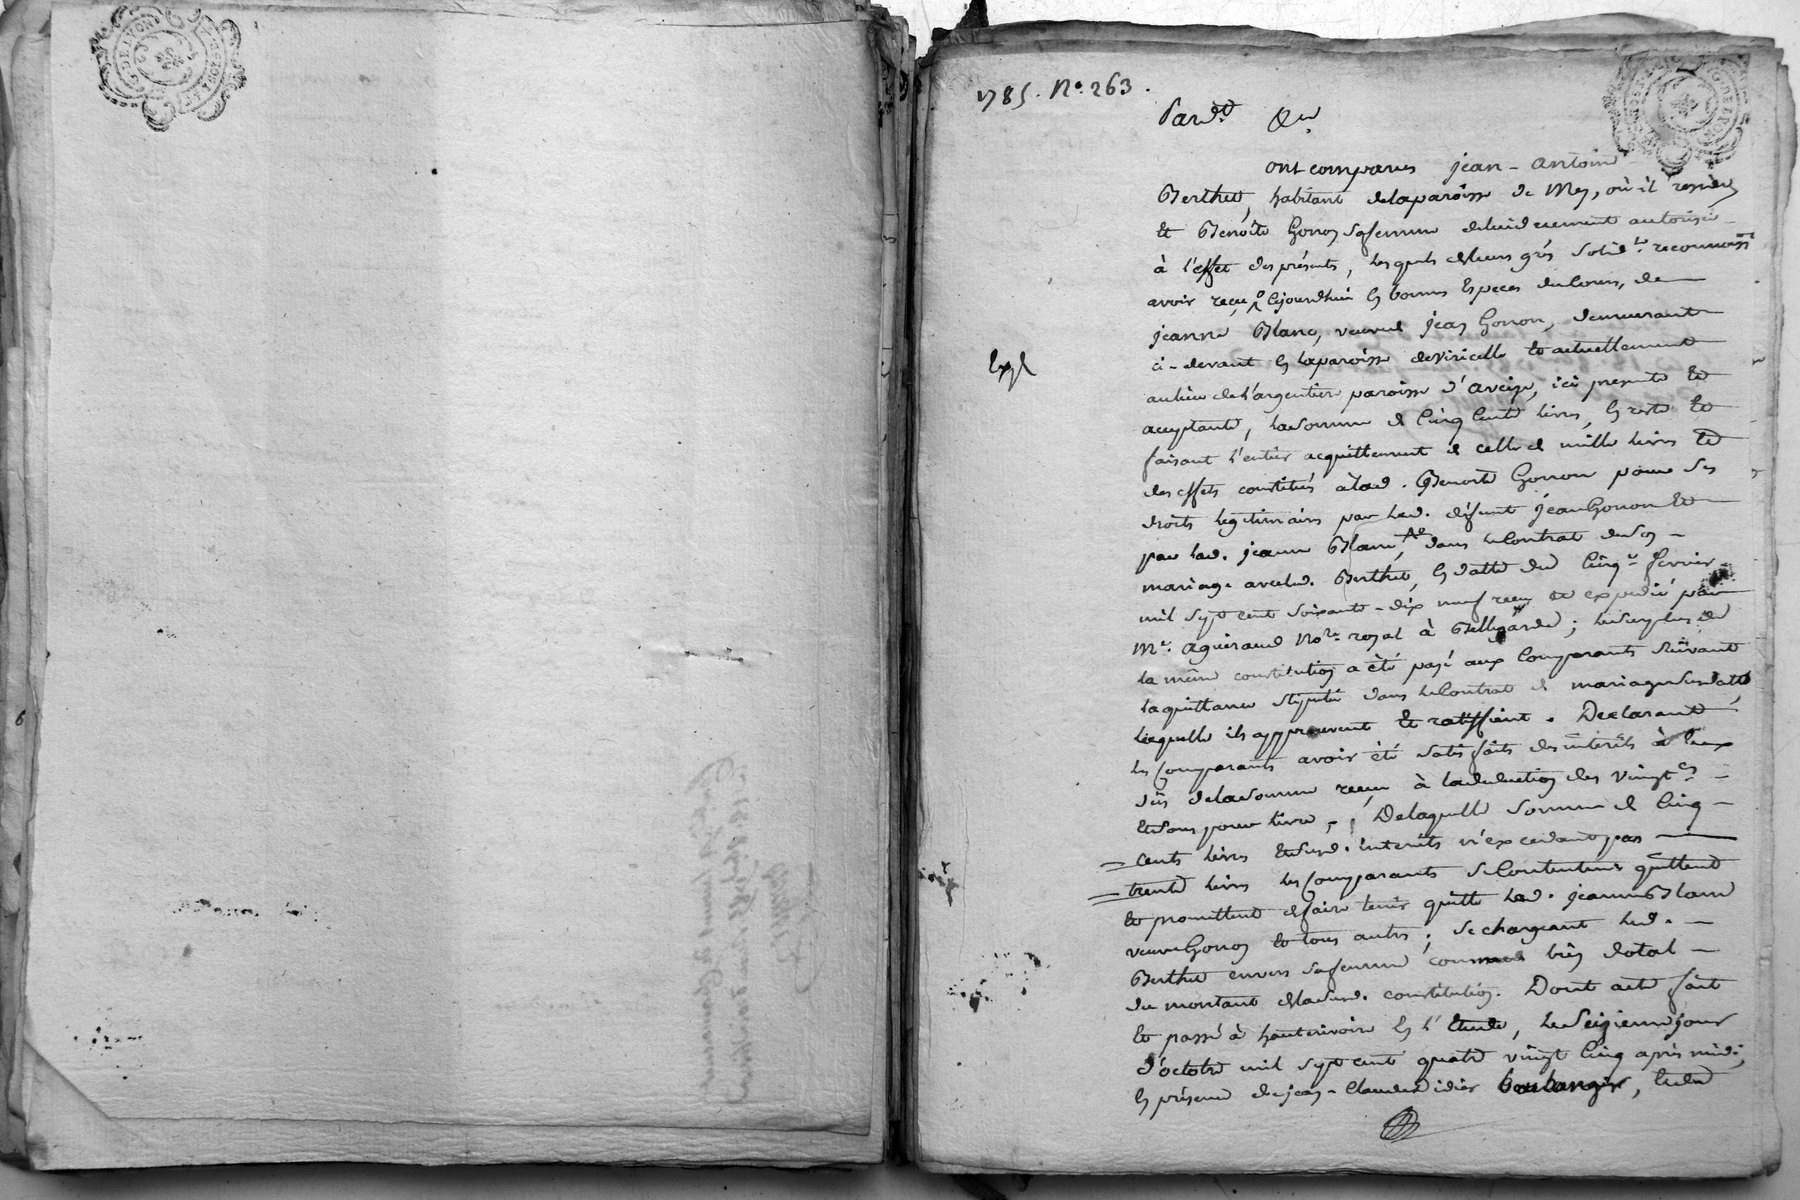 1785. N.° 263.
Pard.t &a
ont comparus jean-antoine
Berthet, habitant de la paroisse de Meys, où il reside,
et Benoite Gonon sa femme de lui duement autorisée
à l'effet des présentes, lesquels de leurs grés solid.t reconnoisst
avoir reçu cejourdhui en bonnes Especes du Cours, de
jeanne Blanc, veuve de jean Gonon, demeurante
ci-devant en la paroisse de Viricelle et actuellement
au lieu de l'argentiere paroisse d'aveize, ici presente et
acceptante, la somme de Cinq Cents livres, en reste et
faisant l'entier acquittement de celle de mille livres et
des effets constitués à lad. Benoite Gonon pour ses
droits legitimaires par led. défunt jean Gonon et
par lad. jeanne Blanc, dans le Contrat de son
mariage avec led. Berthet, en datte du Cinq.e fevrier
mil sept cent soixante-dix neuf reçu et expedié par
M.e aguiraud No.re royal à Bellegarde; le surplus de
la même constitution a été payé aux Comparants suivant
la quittance stipulée dans le Contrat de mariage susdatté
laquelle ils approuvent et ratiffient. Declarant
les Comparants avoir été satisfaits des interêts à eux
dûs de la somme reçue à la deduction des vingt.es
et sous pour livre; De laquelle somme de Cinq
cents livres et desd. interêts n'excedant pas
trente livres les Comparants se Contentent quittent
et promettent de faire tenir quitte lad. jeanne Blanc
veuve Gonon et tous autres; se chargeant led.
Berthet envers sa femme comme bien dotal
du montant de la susd. constitution. Dont acte fait
et passé à hauterivoire en l'Etude, le seizieme jour
d'octobre mil sept cent quatre vingt Cinq après midi,
en présence de jean-Claude didier boulanger, et de
expé